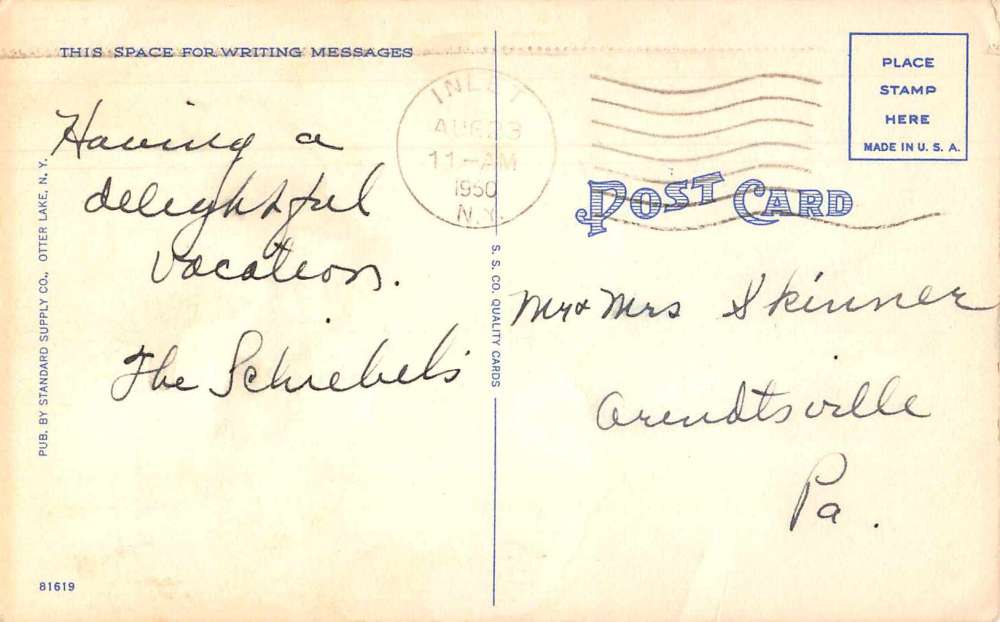 THIS SPACE FOR WRITING MESSAGES
Having a
delightful
vacation.
The Schiebels
PUB. BY STANDARD SUPPLY CO., OTTER LAKE, N. Y.
81619
S. S. CO. QUALITY CARDS
INLET
AUG 23
11-AM
1950
N.Y.
PLACE
STAMP
HERE
MADE IN U. S. A.
POST CARD
Mr & Mrs Skinner
Arendtsville
Pa.